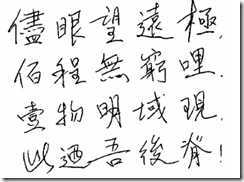 儘眼望遠極,
佰程無窮哩.
壹物明域現.
此迺吾後脊!